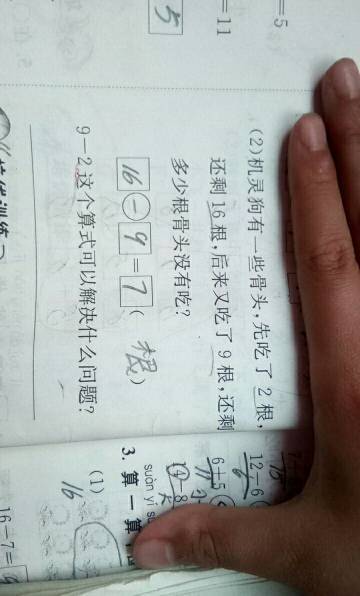 =5
=11
5
(2)机灵狗有一些骨头,先吃了2根,
还剩16根,后来又吃了9根,还剩
多少根骨头没有吃?
16-9=7(根)
9-2这个算式可以解决什么问题?
12-6
6+5
suàn yi
3. 算一算
(1)
16
16-7=